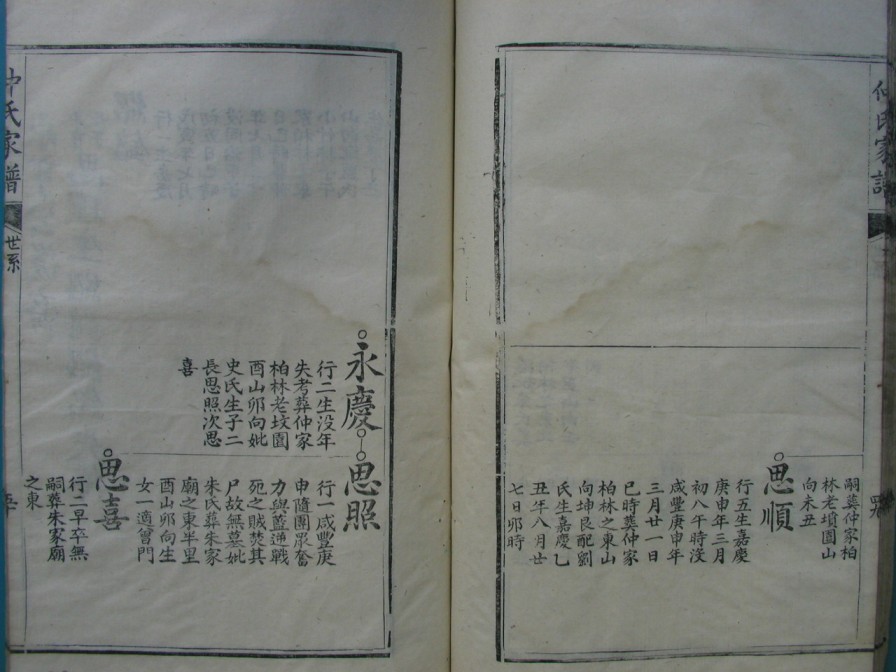 仲氏家譜
嗣葬仲家柏
林老墳園山
向未丑
思順
行五生嘉慶
庚申年三月
初八午時沒
咸豐庚申年
三月廿一日
巳時葬仲家
柏林之東山
向坤艮配劉
氏生嘉慶乙
丑年八月廿
七日卯時
永慶
行二生没年
失考葬仲家
柏林老坟園
酉山卯向妣
史氏生子二
長思照次思
喜
思照
行一咸豐庚
申隨團眾奮
力與蓋逆戰
死之賊焚其
尸故無墓妣
朱氏葬朱家
廟之東半里
酉山卯向生
女一適曾門
思喜
行二早卒無
嗣葬朱家廟
之東
仲氏家譜
世系